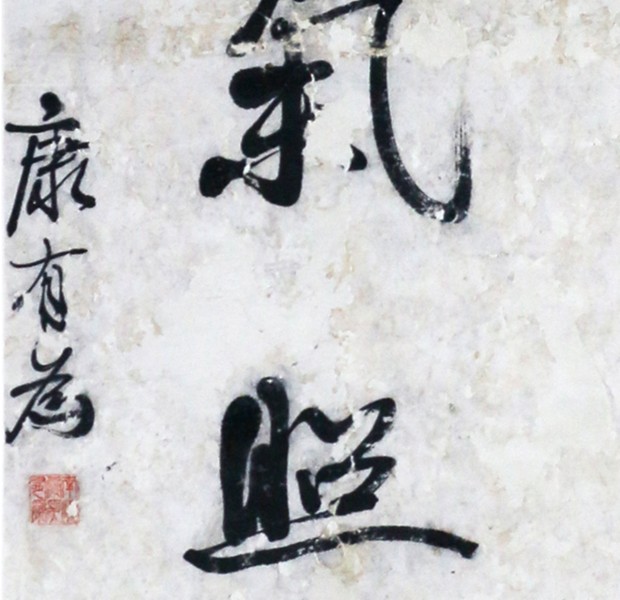 氣照
康有為